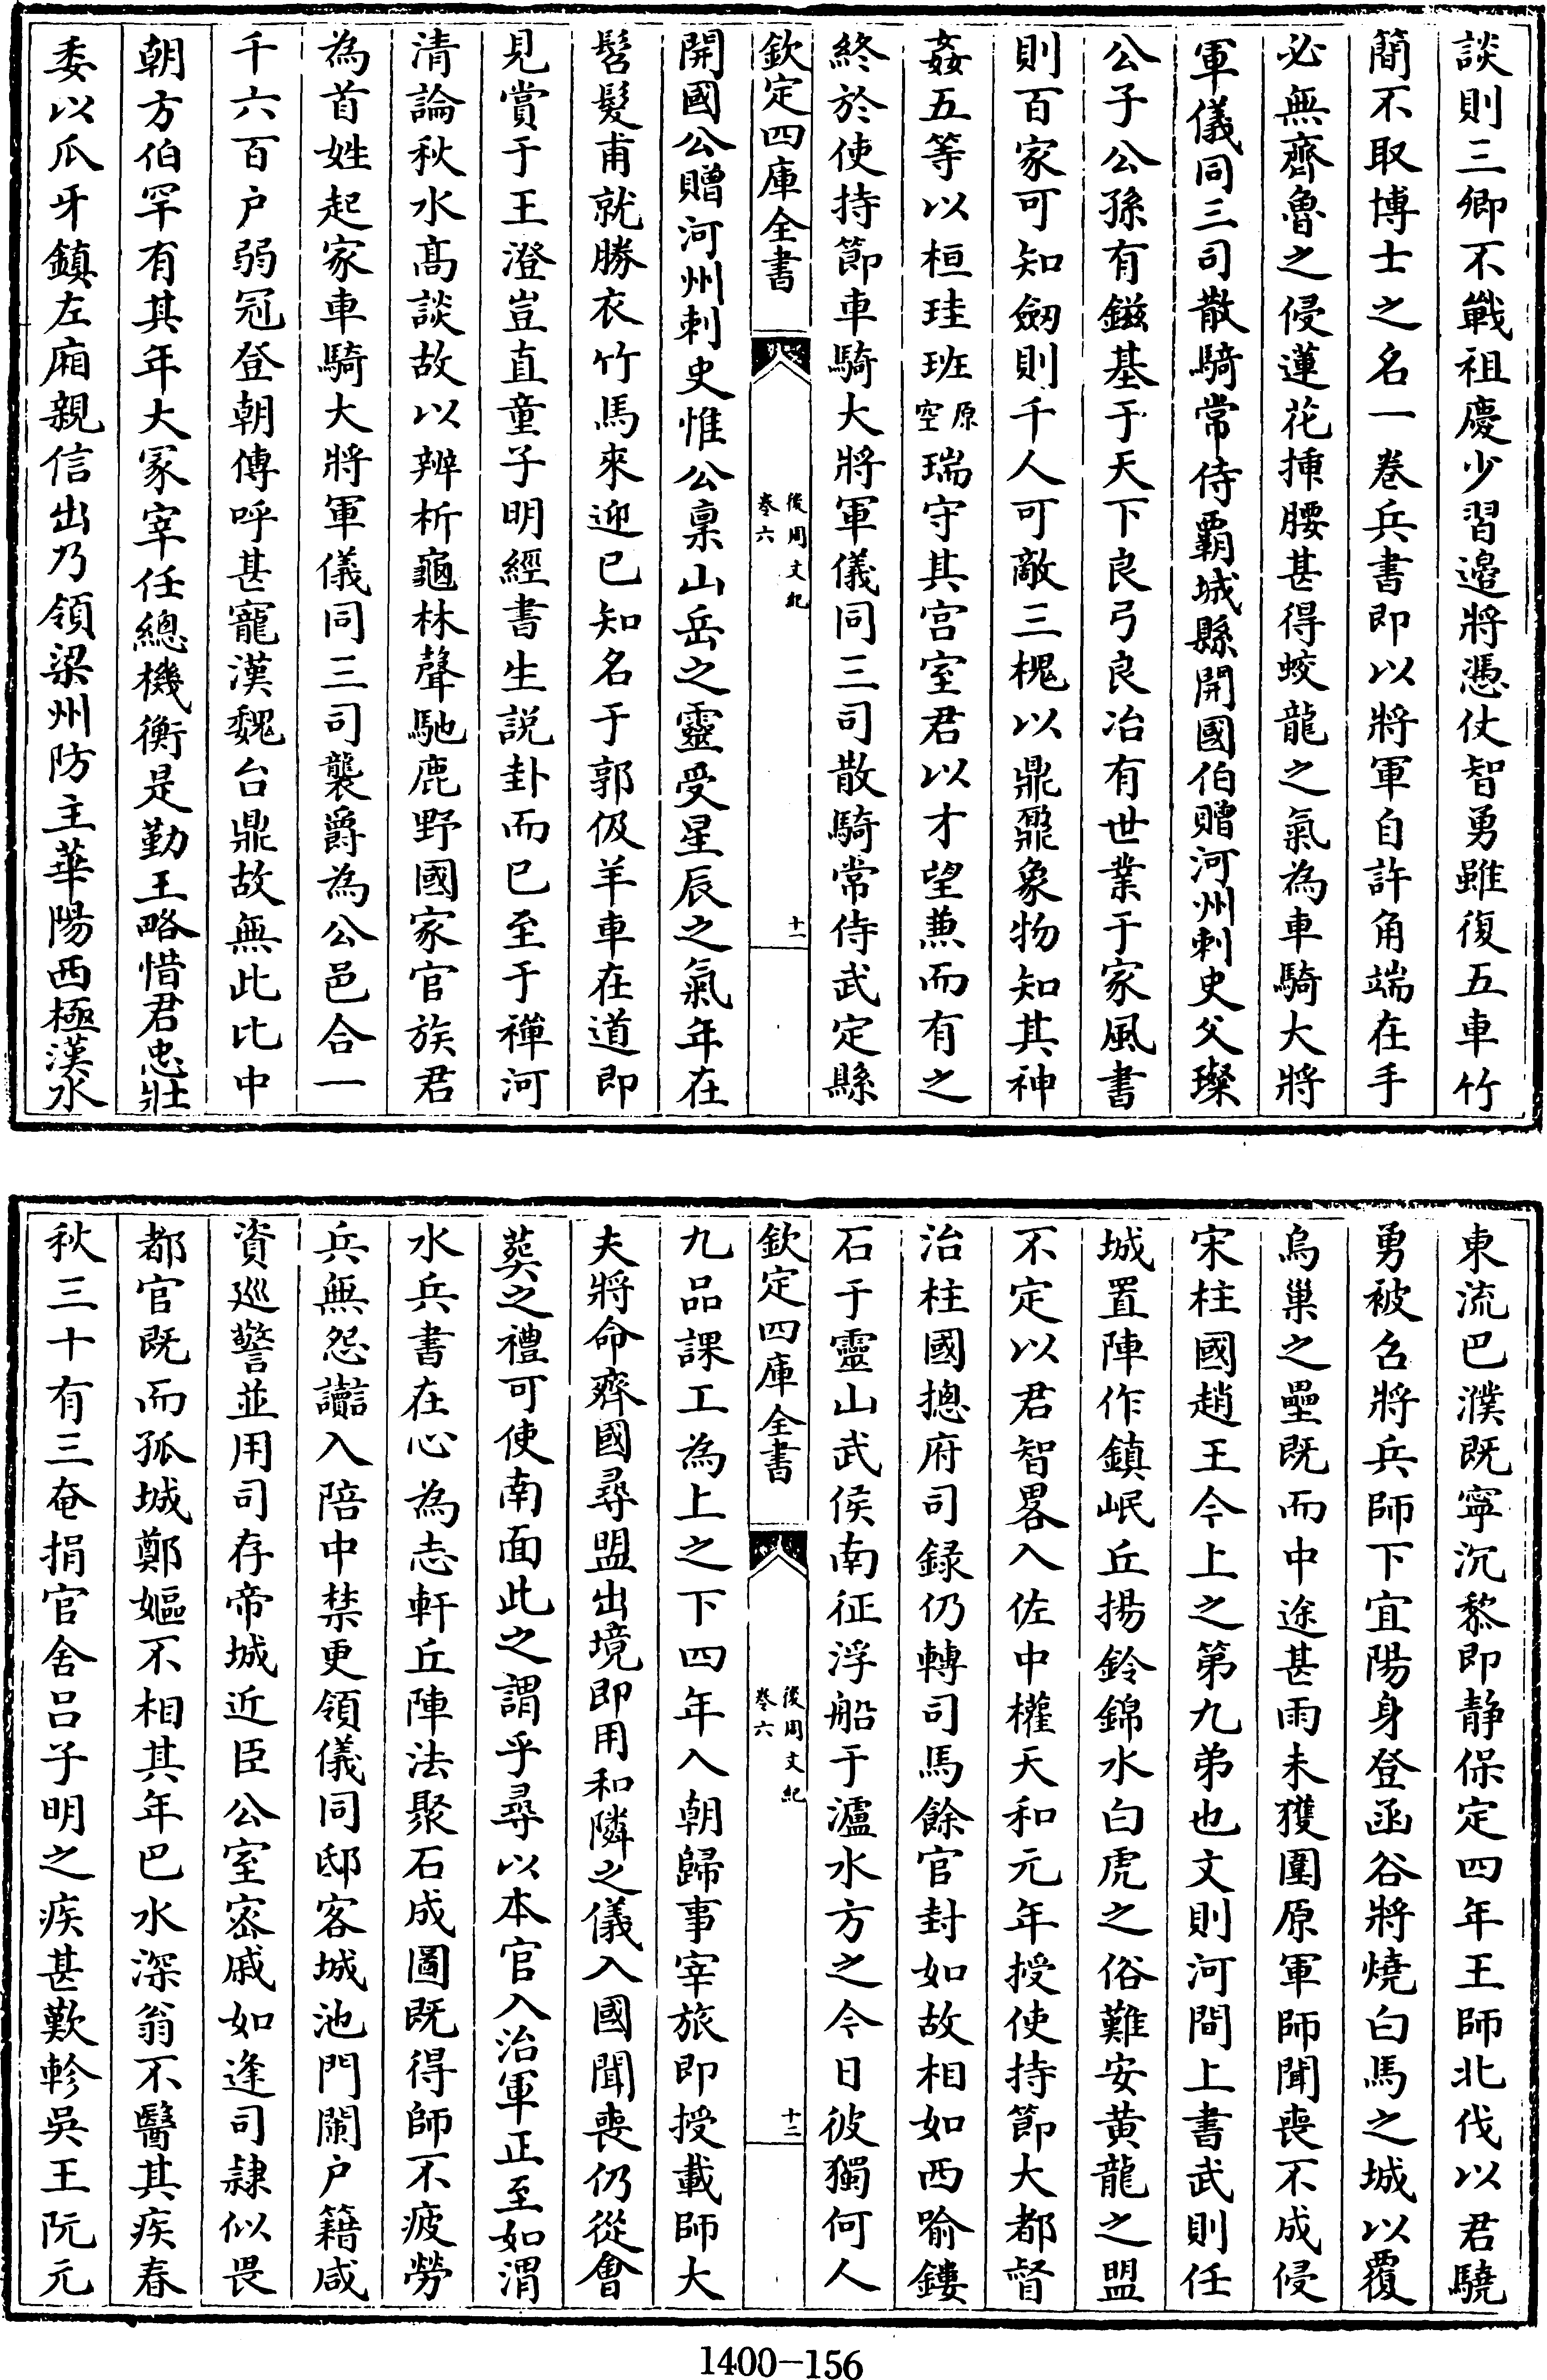 談則三卿不戰祖慶少習邉將憑仗智勇雖復五車竹
簡不取博士之名一卷兵書即以將軍自許角端在手
必無齊魯之侵蓮花揷腰甚得蛟龍之氣為車騎大將
軍儀同三司散騎常侍覇城縣開國伯贈河州刺史父璨
公子公孫有鎡基于天下良弓良冶有世業于家風書
則百家可知劒則千人可敵三槐以鼎鼐象物知其神
姦五等以桓珪班原空瑞守其宫室君以才望兼而有之
終於使持節車騎大將軍儀同三司散騎常侍武定縣
欽定四庫全書
後周文紀
卷六
十一
開國公贈河州刺史惟公稟山岳之靈受星辰之氣年在
髫髮甫就勝衣竹馬來迎已知名于郭伋羊車在道即
見賞于王澄豈直童子明經書生説卦而已至于禪河
清論秋水髙談故以辨析龜林聲馳鹿野國家官族君
為首姓起家車騎大將軍儀同三司襲爵為公邑合一
千六百户弱冠登朝傳呼甚寵漢魏台鼎故無此比中
朝方伯罕有其年大冢宰任總機衡是勤王略惜君忠壯
委以爪牙鎮左廂親信出乃領梁州防主華陽西極漢水
東流巴濮既寧沉黎即静保定四年王師北伐以君驍
勇被召將兵師下宜陽身登函谷將燒白馬之城以覆
烏巢之壘既而中途甚雨未獲圍原軍師聞喪不成侵
宋柱國趙王今上之第九弟也文則河間上書武則任
城置陣作鎮岷丘揚鈴錦水白虎之俗難安黄龍之盟
不定以君智畧入佐中權天和元年授使持節大都督
治柱國摠府司録仍轉司馬餘官封如故相如西喻鏤
石于靈山武侯南征浮船于瀘水方之今日彼獨何人
欽定四庫全書
後周文紀
卷六
十二
九品課工為上之下四年入朝歸事宰旅即授載師大
夫將命齊國尋盟出境即用和隣之儀入國聞喪仍從會
葬之禮可使南面此之謂乎尋以本官入治軍正至如渭
水兵書在心為志軒丘陣法聚石成圖既得師不疲勞
兵無怨讟入陪中禁更領儀同邸客城池門闌户籍咸
資廵警並用司存帝城近臣公室宻戚如逢司隷似畏
都官既而孤城鄭嫗不相其年巴水深翁不醫其疾春
秋三十有三奄捐官舍吕子明之疾甚歎軫吳王阮元
1400-156